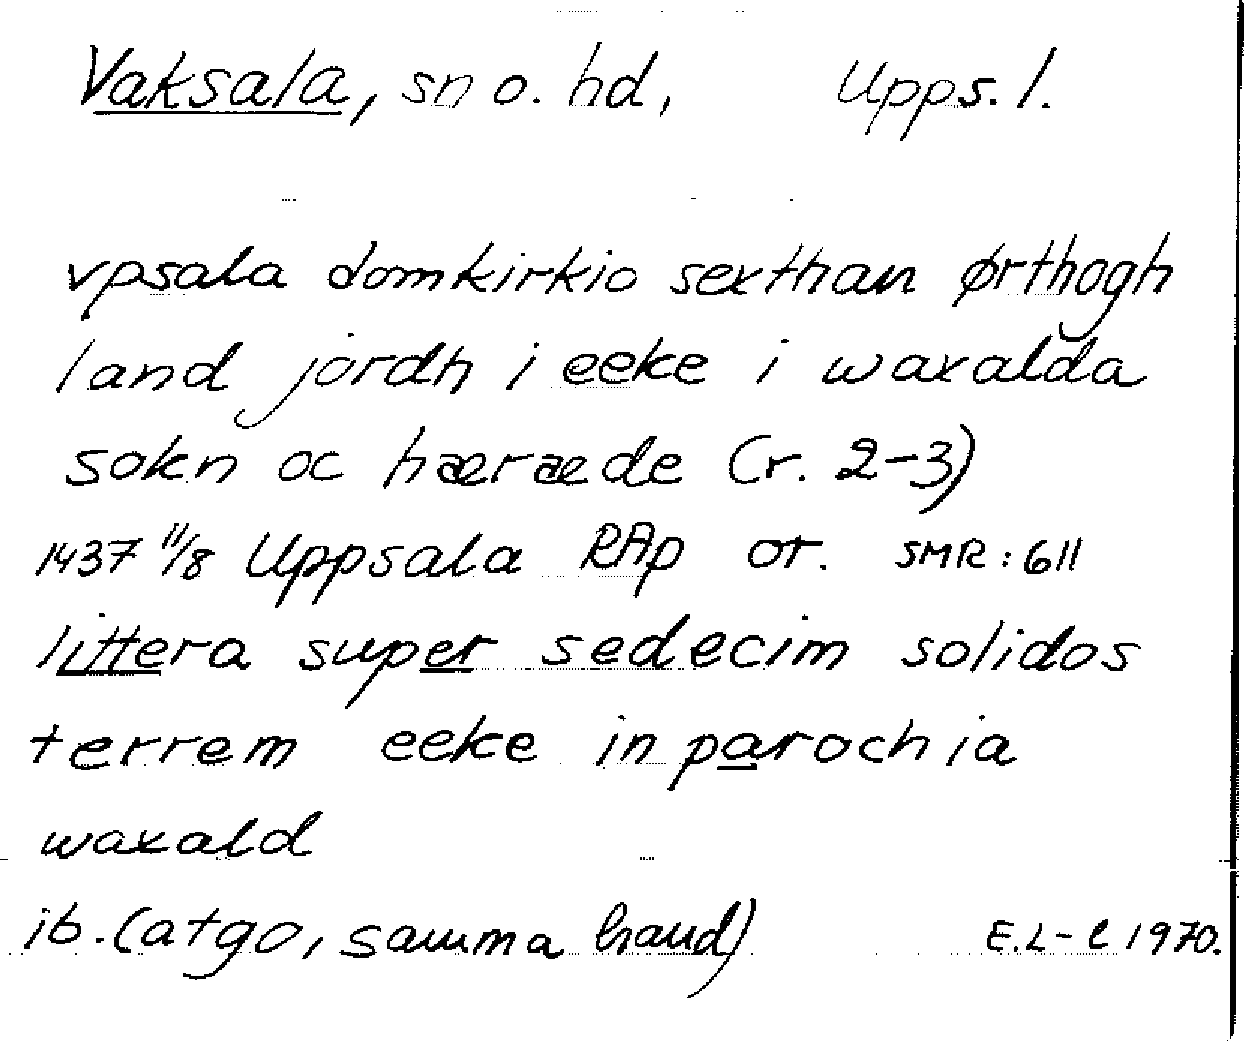 Vaksala, sn o. hd, Upps. l.
vpsala domkirkio sexthan ørthogh
land jordh i eeke i waxalda
sokn oc hæræde (r. 2-3)
1437 11/8 Uppsala RAp or. SMR: 611
littera super sedecim solidos
terrem eeke in parochia
waxald
ib. (atgo, samma hand) E.L-l 1970.